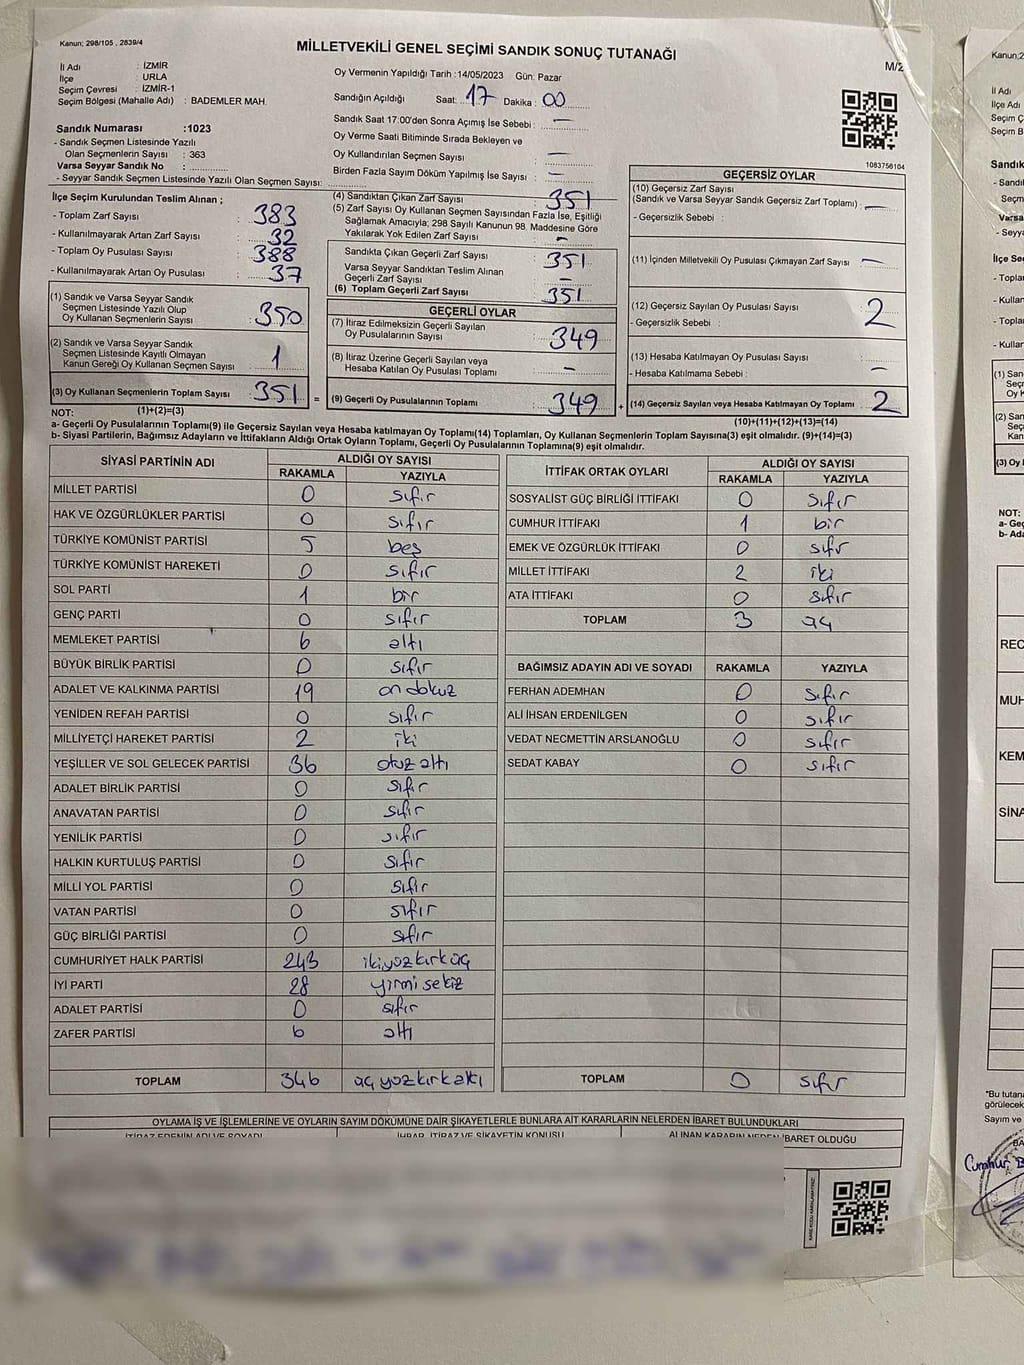 Kanun; 298/105 , 2839/4
MİLLETVEKİLİ GENEL SEÇİMİ SANDIK SONUÇ TUTANAĞI
M/2
İl Adı : İZMİR
İlçe : URLA
Seçim Çevresi : İZMİR-1
Seçim Bölgesi (Mahalle Adı) : BADEMLER MAH.
Sandık Numarası :1023
- Sandık Seçmen Listesinde Yazılı
Olan Seçmenlerin Sayısı : 363
Varsa Seyyar Sandık No :
- Seyyar Sandık Seçmen Listesinde Yazılı Olan Seçmen Sayısı:
Oy Vermenin Yapıldığı Tarih :14/05/2023 Gün: Pazar
Sandığın Açıldığı Saat: 17 Dakika : 00
Sandık Saat 17:00'den Sonra Açımış İse Sebebi : —
Oy Verme Saati Bitiminde Sırada Bekleyen ve
Oy Kullandırılan Seçmen Sayısı : —
Birden Fazla Sayım Döküm Yapılmış İse Sayısı : —
1083756104
İlçe Seçim Kurulundan Teslim Alınan ;
- Toplam Zarf Sayısı : 383
- Kullanılmayarak Artan Zarf Sayısı : 32
- Toplam Oy Pusulası Sayısı : 388
- Kullanılmayarak Artan Oy Pusulası : 37
(1) Sandık ve Varsa Seyyar Sandık
Seçmen Listesinde Yazılı Olup
Oy Kullanan Seçmenlerin Sayısı : 350
(2) Sandık ve Varsa Seyyar Sandık
Seçmen Listesinde Kayıtlı Olmayan
Kanun Gereği Oy Kullanan Seçmen Sayısı : 1
(3) Oy Kullanan Seçmenlerin Toplam Sayısı : 351 =
(1)+(2)=(3)
(4) Sandıktan Çıkan Zarf Sayısı : 351
(5) Zarf Sayısı Oy Kullanan Seçmen Sayısından Fazla İse, Eşitliği
Sağlamak Amacıyla; 298 Sayılı Kanunun 98. Maddesine Göre
Yakılarak Yok Edilen Zarf Sayısı : —
Sandıkta Çıkan Geçerli Zarf Sayısı : 351
Varsa Seyyar Sandıktan Teslim Alınan
Geçerli Zarf Sayısı : —
(6) Toplam Geçerli Zarf Sayısı : 351
GEÇERLİ OYLAR
(7) İtiraz Edilmeksizin Geçerli Sayılan
Oy Pusulalarının Sayısı : 349
(8) İtiraz Üzerine Geçerli Sayılan veya
Hesaba Katılan Oy Pusulası Toplamı : —
(9) Geçerli Oy Pusulalarının Toplamı : 349 +
GEÇERSİZ OYLAR
(10) Geçersiz Zarf Sayısı
(Sandık ve Varsa Seyyar Sandık Geçersiz Zarf Toplamı) : —
- Geçersizlik Sebebi :
(11) İçinden Milletvekili Oy Pusulası Çıkmayan Zarf Sayısı : —
(12) Geçersiz Sayılan Oy Pusulası Sayısı : 2
- Geçersizlik Sebebi :
(13) Hesaba Katılmayan Oy Pusulası Sayısı :
- Hesaba Katılmama Sebebi : —
(14) Geçersiz Sayılan veya Hesaba Katılmayan Oy Toplamı : 2
(10)+(11)+(12)+(13)=(14)
NOT:
a- Geçerli Oy Pusulalarının Toplamı(9) ile Geçersiz Sayılan veya Hesaba katılmayan Oy Toplamı(14) Toplamları, Oy Kullanan Seçmenlerin Toplam Sayısına(3) eşit olmalıdır. (9)+(14)=(3)
b- Siyasi Partilerin, Bağımsız Adayların ve İttifakların Aldığı Ortak Oyların Toplamı, Geçerli Oy Pusulalarının Toplamına(9) eşit olmalıdır.
SİYASİ PARTİNİN ADI ALDIĞI OY SAYISI
RAKAMLA YAZIYLA
MİLLET PARTİSİ 0 sıfır
HAK VE ÖZGÜRLÜKLER PARTİSİ 0 sıfır
TÜRKİYE KOMÜNİST PARTİSİ 5 beş
TÜRKİYE KOMÜNİST HAREKETİ 0 sıfır
SOL PARTİ 1 bir
GENÇ PARTİ 0 sıfır
MEMLEKET PARTİSİ 6 altı
BÜYÜK BİRLİK PARTİSİ 0 sıfır
ADALET VE KALKINMA PARTİSİ 19 on dokuz
YENİDEN REFAH PARTİSİ 0 sıfır
MİLLİYETÇİ HAREKET PARTİSİ 2 iki
YEŞİLLER VE SOL GELECEK PARTİSİ 36 otuz altı
ADALET BİRLİK PARTİSİ 0 sıfır
ANAVATAN PARTİSİ 0 sıfır
YENİLİK PARTİSİ 0 sıfır
HALKIN KURTULUŞ PARTİSİ 0 sıfır
MİLLİ YOL PARTİSİ 0 sıfır
VATAN PARTİSİ 0 sıfır
GÜÇ BİRLİĞİ PARTİSİ 0 sıfır
CUMHURİYET HALK PARTİSİ 243 ikiyüzkırküç
İYİ PARTİ 28 yirmi sekiz
ADALET PARTİSİ 0 sıfır
ZAFER PARTİSİ 6 altı
TOPLAM 346 üçyüzkırkaltı
İTTİFAK ORTAK OYLARI ALDIĞI OY SAYISI
RAKAMLA YAZIYLA
SOSYALİST GÜÇ BİRLİĞİ İTTİFAKI 0 sıfır
CUMHUR İTTİFAKI 1 bir
EMEK VE ÖZGÜRLÜK İTTİFAKI 0 sıfır
MİLLET İTTİFAKI 2 iki
ATA İTTİFAKI 0 sıfır
TOPLAM 3 üç
BAĞIMSIZ ADAYIN ADI VE SOYADI RAKAMLA YAZIYLA
FERHAN ADEMHAN 0 sıfır
ALİ İHSAN ERDENİLGEN 0 sıfır
VEDAT NECMETTİN ARSLANOĞLU 0 sıfır
SEDAT KABAY 0 sıfır
TOPLAM 0 sıfır
OYLAMA İŞ VE İŞLEMLERİNE VE OYLARIN SAYIM DÖKÜMÜNE DAİR ŞİKAYETLERLE BUNLARA AİT KARARLARIN NELERDEN İBARET BULUNDUKLARI
İTİRAZ EDENİN ADI VE SOYADI İHBAR, İTİRAZ VE ŞİKAYETİN KONUSU ALINAN KARARIN NEDEN İBARET OLDUĞU
Kanun;2
İl Adı
İlçe Adı
Seçim Ç
Seçim B
Sandık
- Sandı
Seçm
Varsa
- Seyy
İlçe Se
- Topla
- Kullar
- Topla
- Kullar
(1) San
Seç
Oy K
(2) San
Seç
Kan
(3) Oy
NOT:
a- Geç
b- Ada
REC
MUH
KEM
SİNA
*Bu tutana
görülecek
Sayım ve